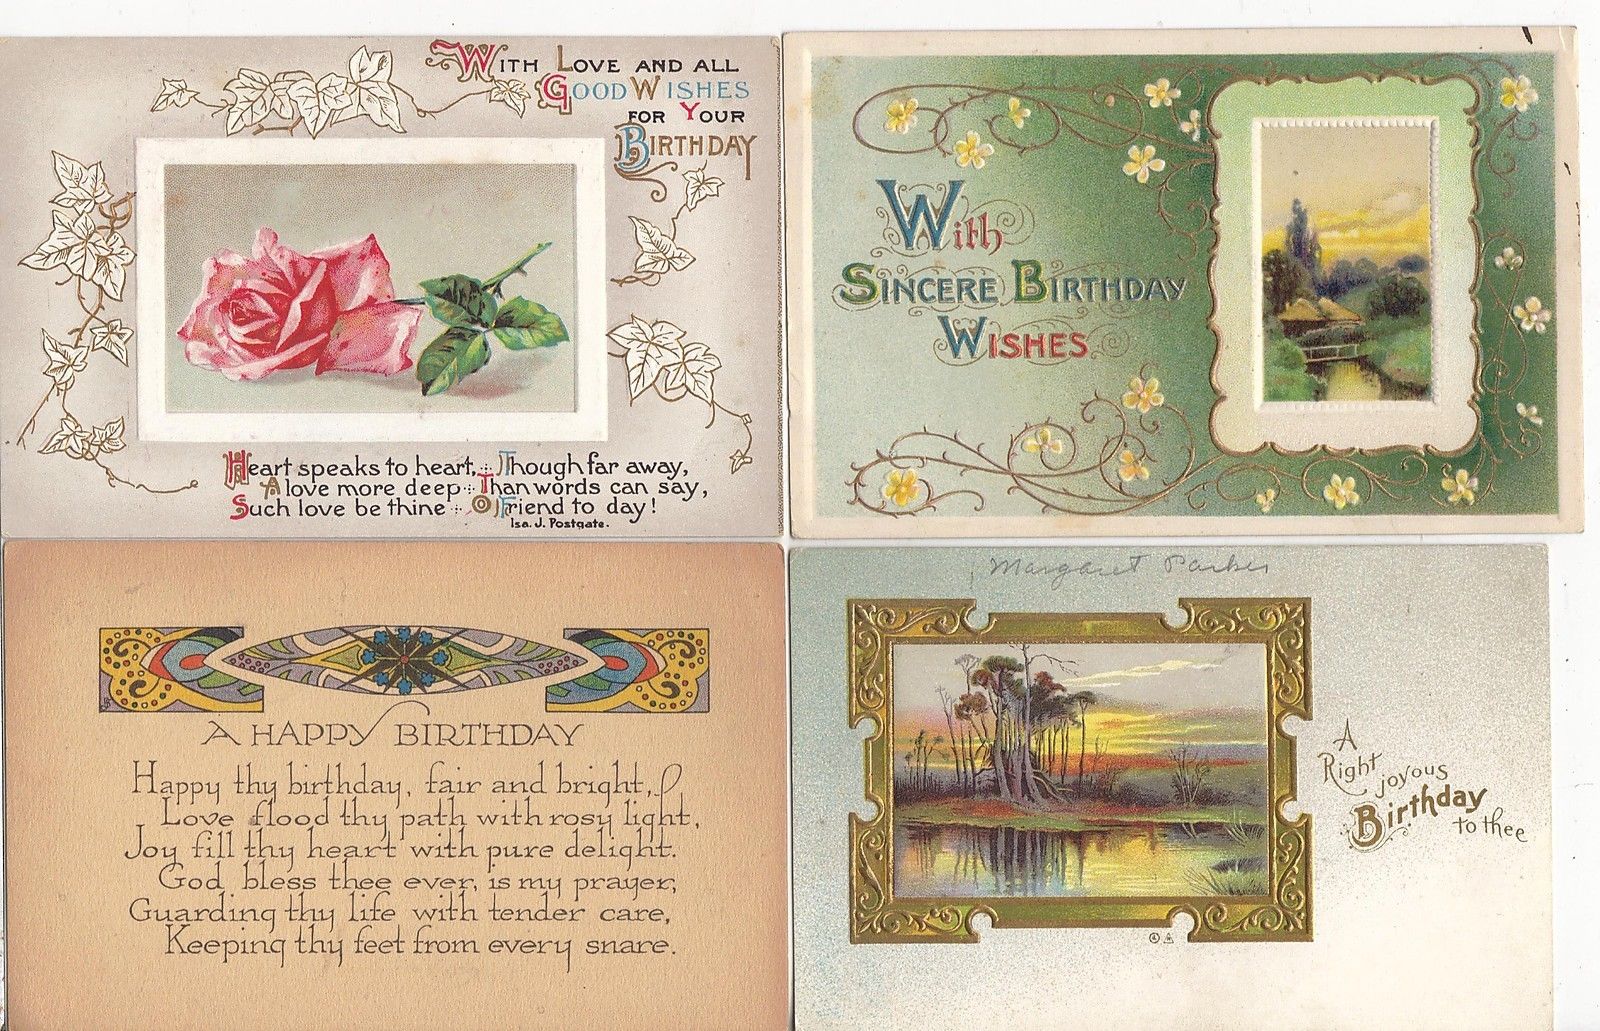 With Love and all
Good Wishes
for Your
Birthday
Heart speaks to heart, Though far away,
A love more deep Than words can say,
Such love be thine O Friend to day!
Isa. J. Postgate.
With
Sincere Birthday
Wishes
A HAPPY BIRTHDAY
Happy thy birthday, fair and bright,
Love flood thy path with rosy light,
Joy fill thy heart with pure delight.
God bless thee ever, is my prayer,
Guarding thy life with tender care,
Keeping thy feet from every snare.
Margaret Parker
A
Right
joyous
Birthday
to thee
©